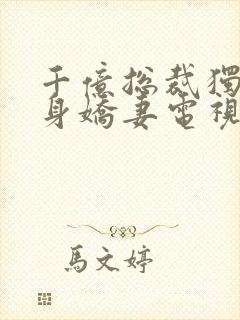 千億総裁獨
身嬌妻電視
馬文婷